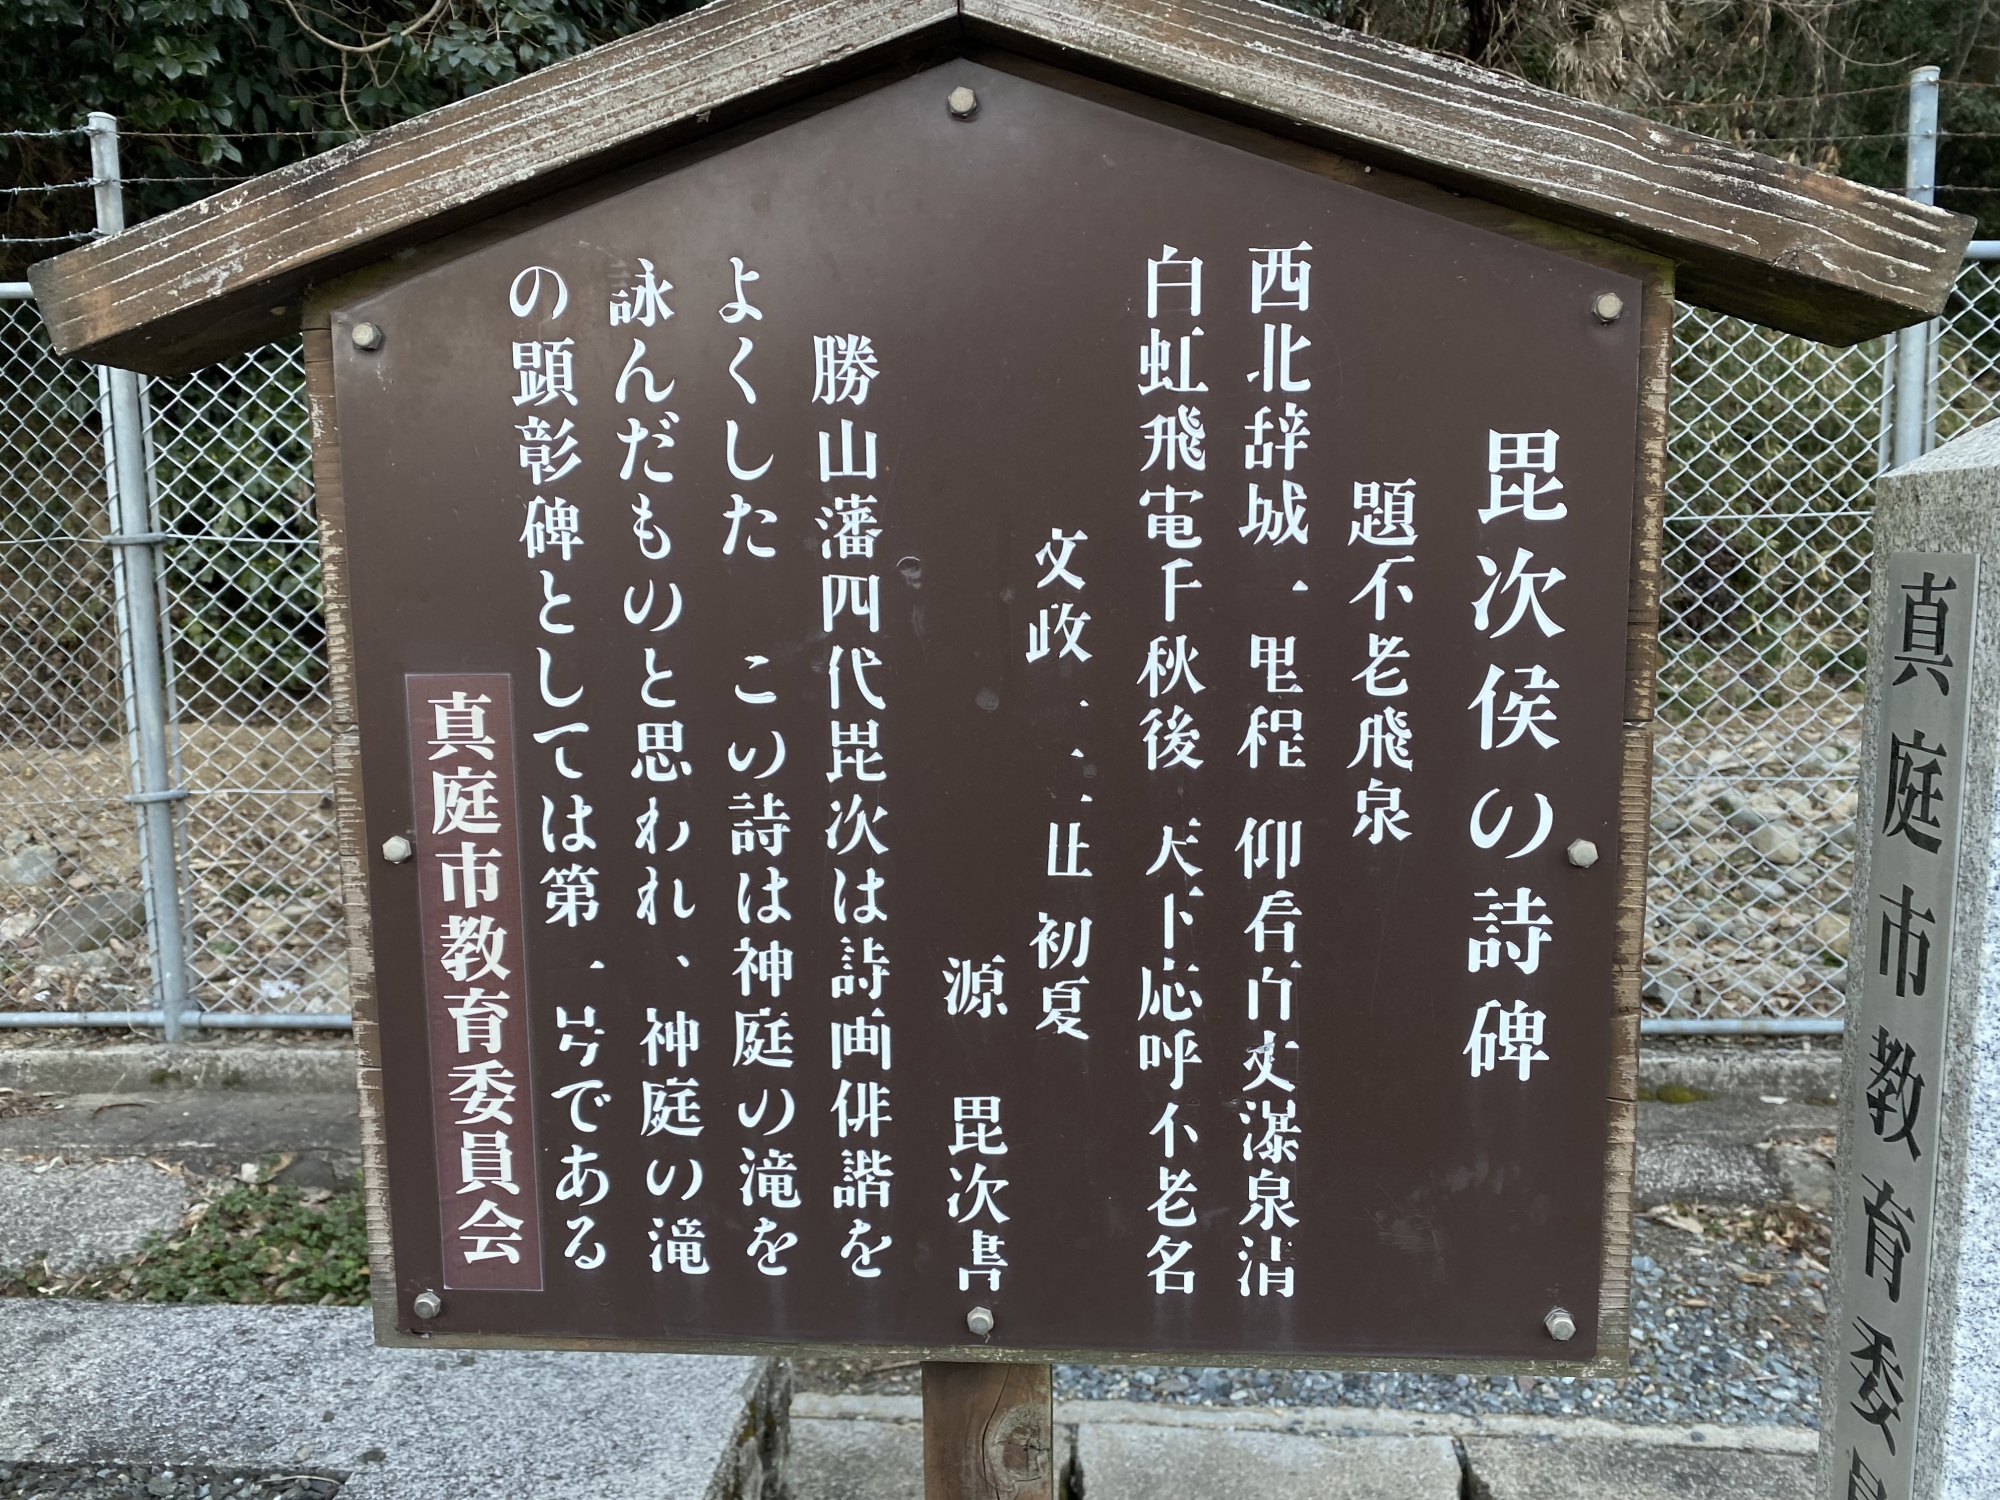 毘次侯の詩碑
題不老飛泉
西北辞城一里程 仰看百丈瀑泉清
白虹飛電千秋後 天下応呼不老名
文政十二丑初夏
源 毘次書
勝山藩四代毘次は詩画俳諧を
よくした この詩は神庭の滝を
詠んだものと思われ、神庭の滝
の顕彰碑としては第一号である
真庭市教育委員会
真庭市教育委員